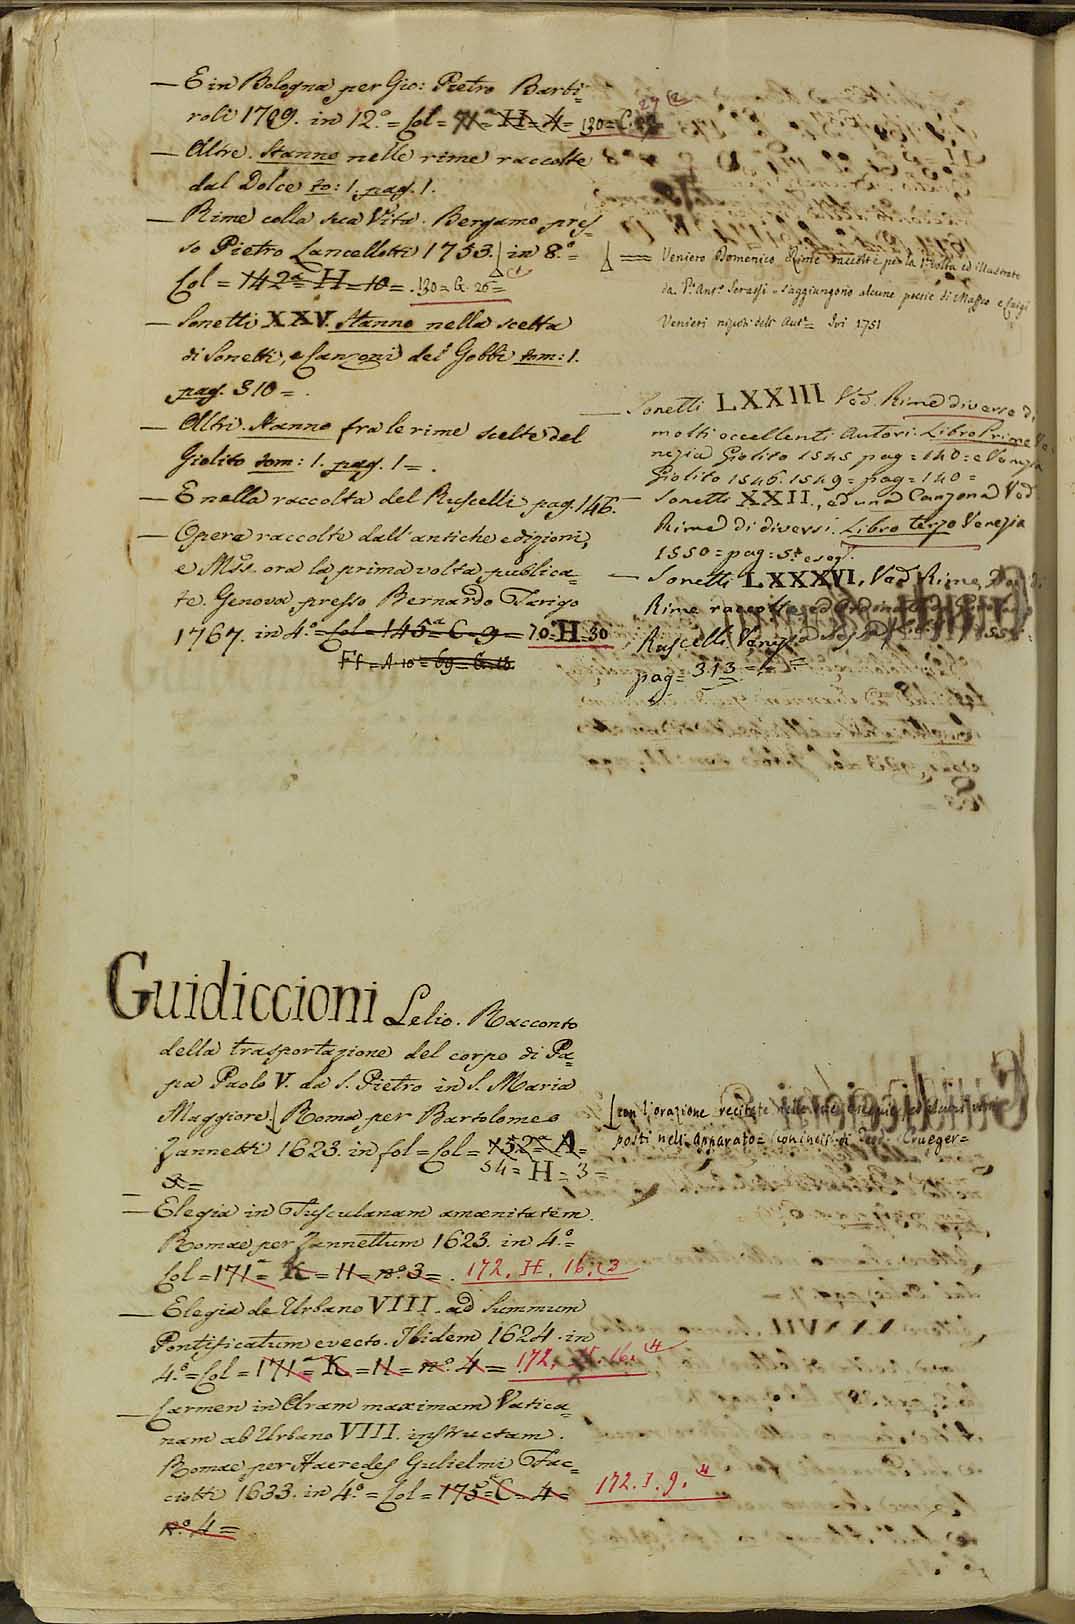 — E in Bologna per Gio: Pietro Barbi-
roli 1709. in 12.º = Col = 71ª = H = 4 = 130 = C.
— Altre. Stanno nelle rime raccolte
dal Dolce to: 1. pag. 1.
— Rime colla sua Vita. Bergamo pres-
so Pietro Lancellotti 1753. | in 8.º =
Col = 142ª = H = 10 = . 130 = G. 26 =
— Sonetti XXV. Stanno nella scelta
di Sonetti, e Canzoni de' Gobbi tom: 1.
pag. 310 = .
— Altri. Stanno fra le rime scelte del
Giolito tom: 1. pag. 1 = .
— E nella raccolta del Ruscelli pag. 146.
— Opera raccolte dall'antiche edizioni,
e Mss. ora la prima volta publica-
te. Genova presso Bernardo Tarigo
1767. in 4.º = Col = 145ª = C = 9 = 70 = H = 30
Ff = A 10 = 69 = G. 18.
== Veniero Domenico Rime raccolte per la 1ª volta ed illustrate
da Pr Antº Serassi = s'aggiungono alcune poesie di Maffeo e Luigi
Venieri nipoti dell' Autº = Ivi 1751
— Sonetti LXXIII Ved. Rime diverse di
molti eccellenti Autori. Libro Primo Ve-
nezia Giolito 1545 pag = 140 = e Venezia
Giolito 1546. 1549 = pag = 140 =
— Sonetti XXII., ed una Canzona Ved
Rime di diversi. Libro terzo Venezia
1550 = pag = 5.ª e seg.
— Sonetti LXXXVI, Ved Rime
Rime raccolte, ed Ordinate
Ruscelli Venezia
pag = 313 =
Guidiccioni Lelio. Racconto
della trasportazione del corpo di Pa-
pa Paolo V. da S. Pietro in S. Maria
Maggiore. | Roma per Bartolomeo
Zannetti 1623. in fol = Col = 152ª = A =
8 = 54 = H = 3 =
| con l'orazione recitata nelle sue Esequie, ed alcuni versi
posti nell'apparato = (con incis: di Teod. Crueger =
— Elegia in Tusculanam amænitatem.
Romæ per Zannettum 1623. in 4.º =
Col = 171ª = K = 11 = nº. 3 = . 172. H. 16. 3
— Elegia de Urbano VIII. ad Summum
Pontificatum evecto. Ibidem 1624. in
4.º = Col = 171ª = K = 11 = nº. 4 = 172. H. 16. 4
— Carmen in Aram maximam Vatica-
nam ab Urbano VIII. instructam.
Romæ per Hæredes Gulielmi Fac-
ciotti 1633. in 4.º = Col = 175ª = C = 4 = 172. I. 9. 4
nº. 4 =